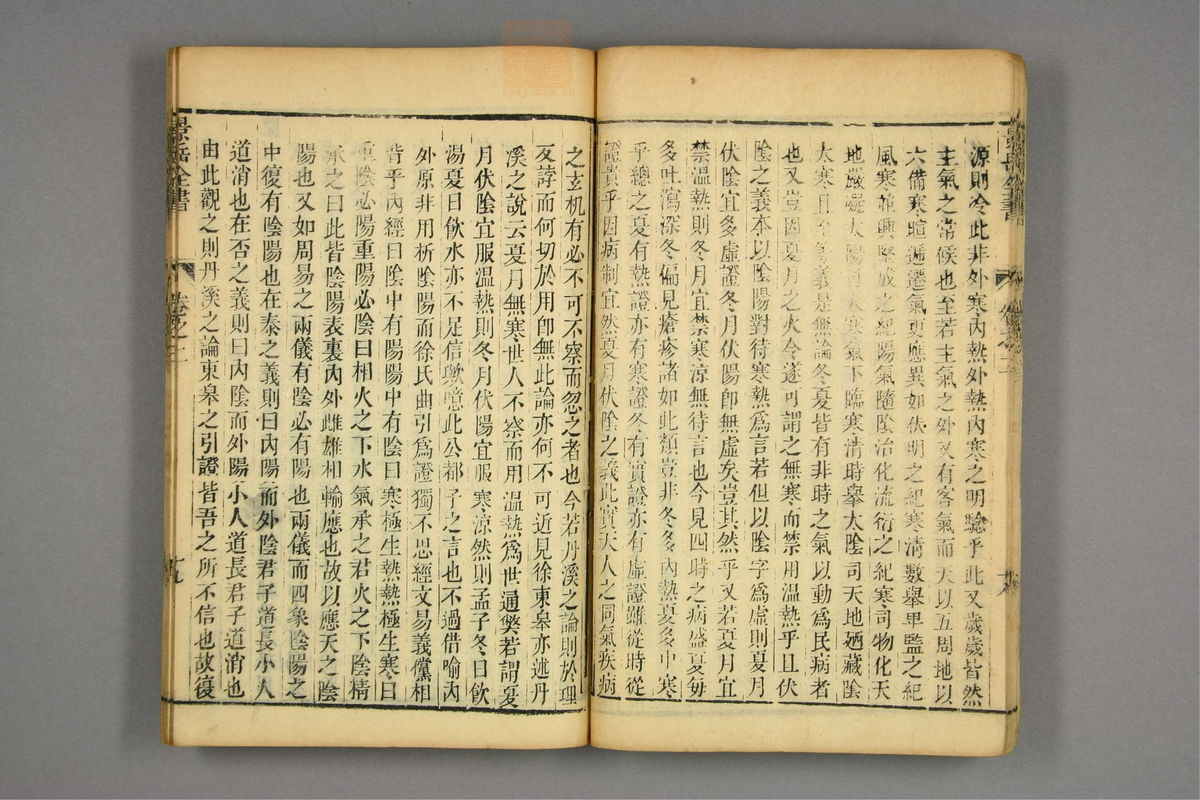 源則冷此非外寒內熱外熱內寒之明驗乎此又歲歲皆然
主氣之常候也至若主氣之外又有客氣而天以五周地以
六備寒暄遞遷氣更應異如伏明之紀寒清數舉卑監之紀
風寒並興堅成之紀陽氣隨陰治化流衍之紀寒司物化天
地嚴凝太陽司天寒氣下臨寒清時舉太陰司天地廼藏陰
大寒且至等義是無論冬夏皆有非時之氣以動為民病者
也又豈因夏月之火令遂可謂之無寒而禁用溫熱乎且伏
陰之義本以陰陽對待寒熱為言若但以陰字為虛則夏月
伏陰宜多虛證冬月伏陽卽無虛矣豈其然乎又若夏月宜
禁溫熱則冬月宜禁寒涼無待言也今見四時之病盛夏每
多吐瀉深冬偏見瘡疹諸如此類豈非冬多內熱夏多中寒
乎總之夏有熱證亦有寒證冬有實證亦有虛證雖從時從
證貴乎因病制宜然夏月伏陰之義此實天人之同氣疾病
之玄机有必不可不察而忽之者也今若丹溪之論則於理
反誖而何切於用卽無此論亦何不可近見徐東皋亦述丹
溪之說云夏月無寒世人不察而用溫熱為世通獘若謂夏
月伏陰宜服溫熱則冬月伏陽宜服寒涼然則孟子冬日飲
湯夏日飲水亦不足信歟噫此公都子之言也不過借喻內
外原非用析陰陽而徐氏曲引為證獨不思經文易義儻相
背乎內經曰陰中有陽陽中有陰曰寒極生熱熱極生寒曰
重陰必陽重陽必陰曰相火之下水氣承之君火之下陰精
承之曰此皆陰陽表裏內外雌雄相輸應也故以應天之陰
陽也又如周易之兩儀有陰必有陽也兩儀而四象陰陽之
中復有陰陽也在泰之義則曰內陽而外陰君子道長小人
道消也在否之義則曰內陰而外陽小人道長君子道消也
由此觀之則丹溪之論東皋之引證皆吾之所不信也故復
景岳全書
卷之二
十九